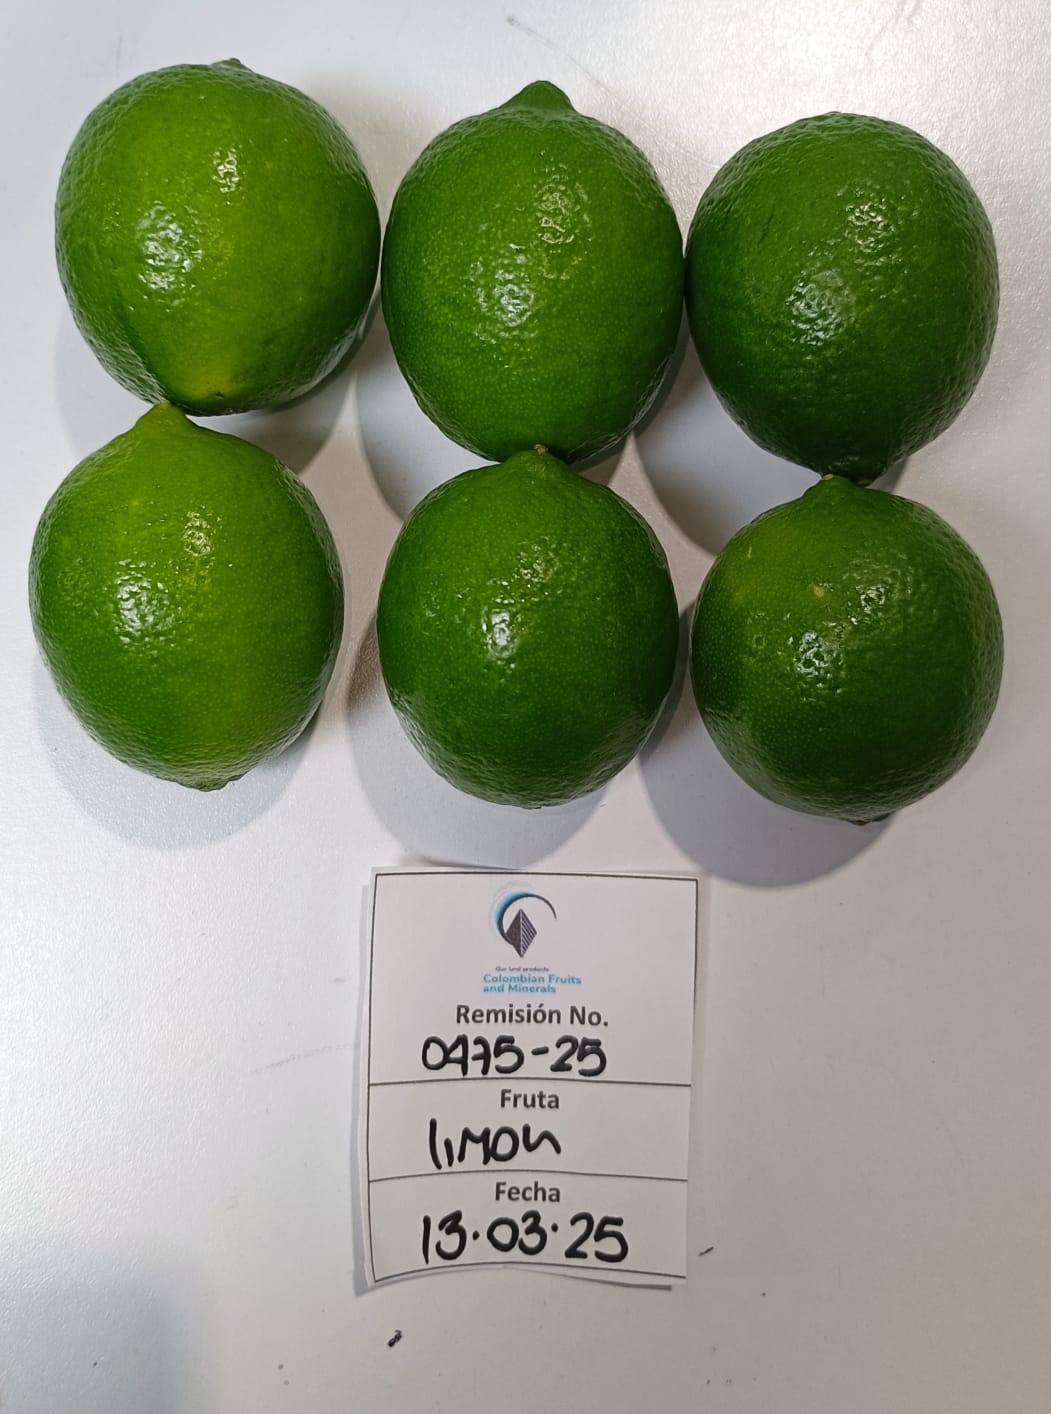 Our land products
Colombian Fruits
and Minerals
Remisión No.
0475-25
Fruta
limon
Fecha
13.03.25